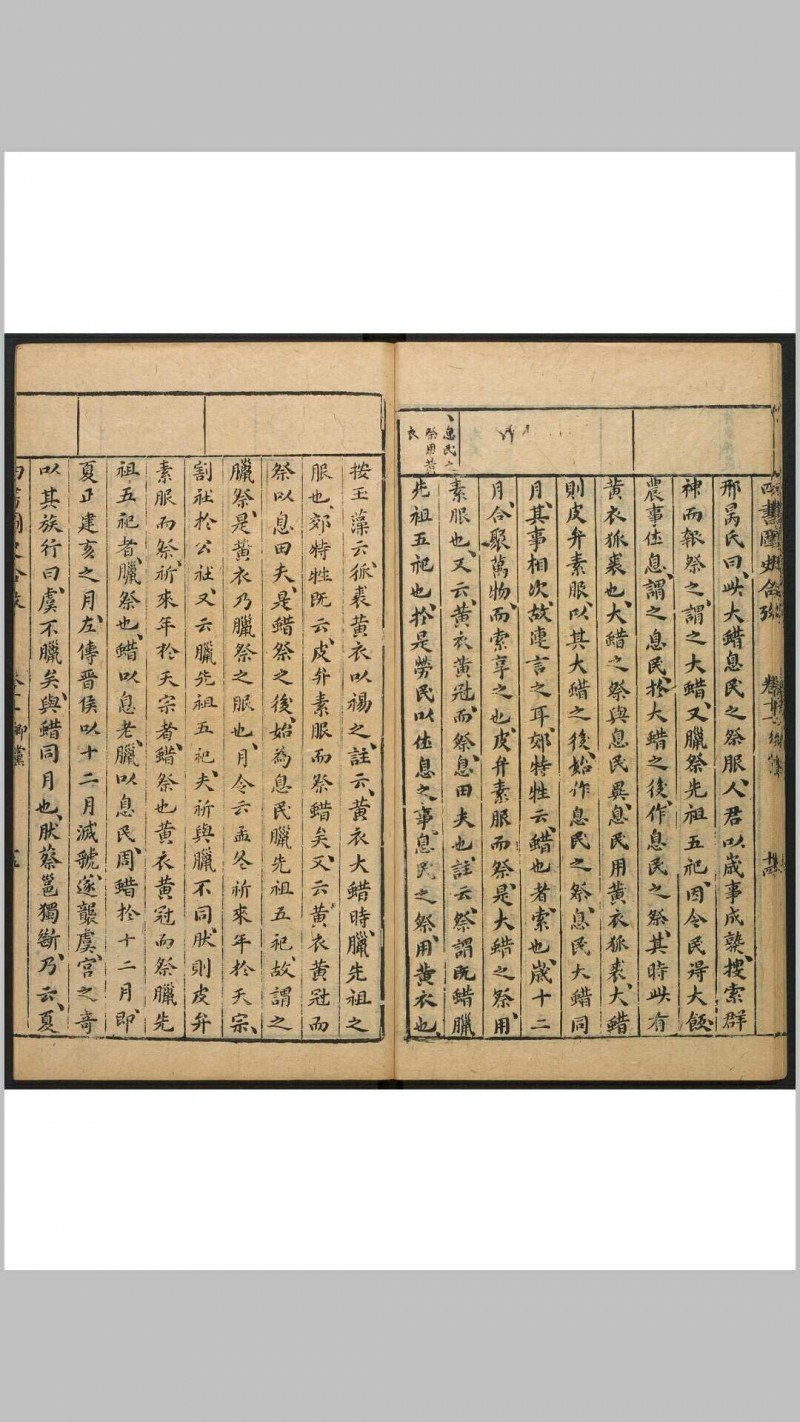 四書圖史合攷 卷十二
邢昺氏曰、此大蜡息民之祭服、人君以歲事成熟、搜索群
神而報祭之、謂之大蜡、又臘祭先祖五祀、因令民得大飲
農事休息、謂之息民、於大蜡之後、作息民之祭、其時此有
黃衣狐裘也、大蜡之祭與息民異、息民用黃衣狐裘、大蜡
則皮弁素服、以其大蜡之後、始作息民之祭、息民大蜡同
月、其事相次、故連言之耳、郊特牲云、蜡也者、索也、歲十二
月、合聚萬物、而索享之也、皮弁素服而祭、是大蜡之祭、用、
息民之
祭用黃
衣
素服也、又云黃衣黃冠而祭、息田夫也、註云、祭謂既蜡臘
先祖五祀也、於是勞民以休息之、事息民之祭、用黃衣也、
按玉藻云、狐裘黃衣以裼之、註云、黃衣大蜡時、臘先祖之
服也、郊特牲既云、皮弁素服而祭蜡矣、又云黃衣黃冠而
祭以息田夫、是蜡祭之後、始為息民臘先祖五祀、故謂之
臘祭、是黃衣乃臘祭之服也、月令云孟冬祈來年於天宗、
割祉於公社、又云臘先祖五祀、夫祈與臘不同、肰則皮弁
素服而祭、祈來年於天宗者、蜡祭也黃衣黃冠而祭臘先
祖五祀者、臘祭也、蜡以息老、臘以息民、周蜡於十二月、即、
夏正建亥之月、左傳晉侯以十二月滅虢、遂襲虞、宮之奇
以其族行曰、虞不臘矣、與蜡同月也、肰蔡邕獨斷、乃云、夏
鄉黨